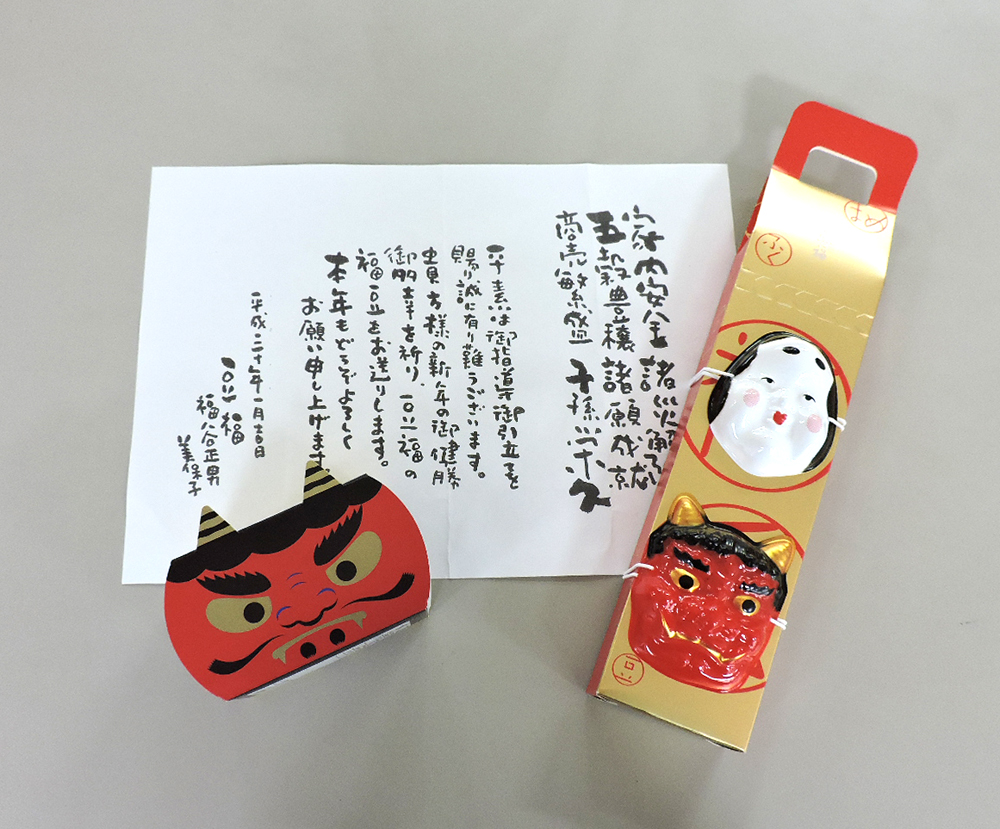 家内安全 諸災解
五穀豊穣 諸願成就
商売繁盛 子孫
平素は御指導御引立を
賜り誠に有り難うございます。
貴方様の新年の御健勝
御多幸を祈り、豆福の
福豆をお送りします。
本年もどうぞよろしく
お願い申し上げます
平成二十年一月吉日
豆福
福谷正男
美保子
まめ
ふく
豆